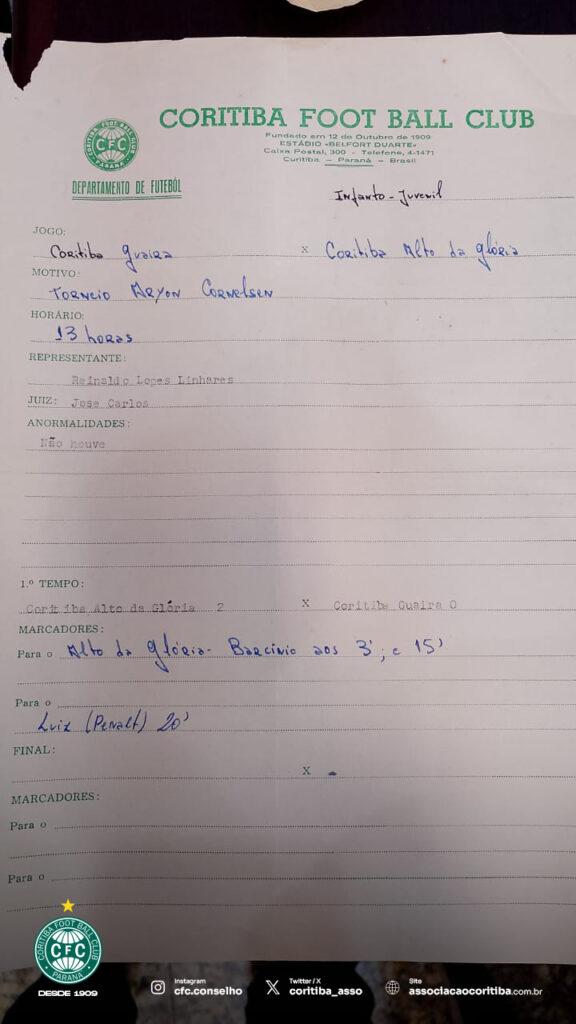 CORITIBA FOOT BALL CLUB
Fundado em 12 de Outubro de 1909
ESTÁDIO «BELFORT DUARTE»
Caixa Postal, 300 - Telefone, 4-1471
Curitiba - Paraná - Brasil
CORITIBA FOOT BALL CLUB
CFC
PARANÁ
DEPARTAMENTO DE FUTEBÓL
Infanto-Juvenil
JOGO:
Coritiba Guaira X Coritiba Alto da Glória
MOTIVO:
Torneio Aryon Cornelsen
HORÁRIO:
13 horas
REPRESENTANTE:
Reinaldo Lopes Linhares
JUIZ: Jose Carlos
ANORMALIDADES:
Não houve
1.º TEMPO:
Coritiba Alto da Glória 2 X Coritiba Guaira 0
MARCADORES:
Para o Alto da Glória - Barcínio aos 3', e 15'
Para o
Luiz (Penalt) 20'
FINAL:
X
MARCADORES:
Para o
Para o
CORITIBA FOOT BALL CLUB
CFC
PARANÁ
DESDE 1909
Instagram
cfc.conselho
Twitter/X
coritiba_asso
Site
associacaocoritiba.com.br